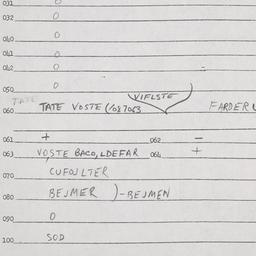 031 0
032 0
040 0
041 0
042 0
050 0
VIFLSTE
TATE
060 TATE VOSTE (/087063 FARDER
061 + 062 -
063 VOSTE BACO, LDEFAR 064 +
070 CUFOJLTER
080 BEJMER )-BEJMEN
090 0
100 SOD